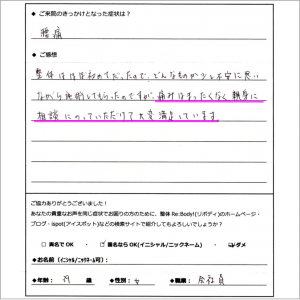 ◆ ご来院のきっかけとなった症状は？
腰痛
◆ ご感想
整体はほぼ初めてだったので、どんなものか少し不安に思い
ながら施術してもらったのですが、痛みはまったくなく親身に
相談にのっていただけて大変満足しています。
ご協力ありがとうございました！
あなたの貴重なお声を同じ症状でお困りの方のために、整体 Re:Body!(リボディ)のホームページ・
ブログ・ispot(アイスポット)などの検索サイトで紹介してもよろしいでしょうか？
□ 実名でOK ・ ☑ 匿名ならOK(イニシャル/ニックネーム) ・ □ダメ
◆お名前（イニシャル/ニックネーム可）：
◆年齢： 29 歳 ◆性別： 女 ◆職業： 会社員